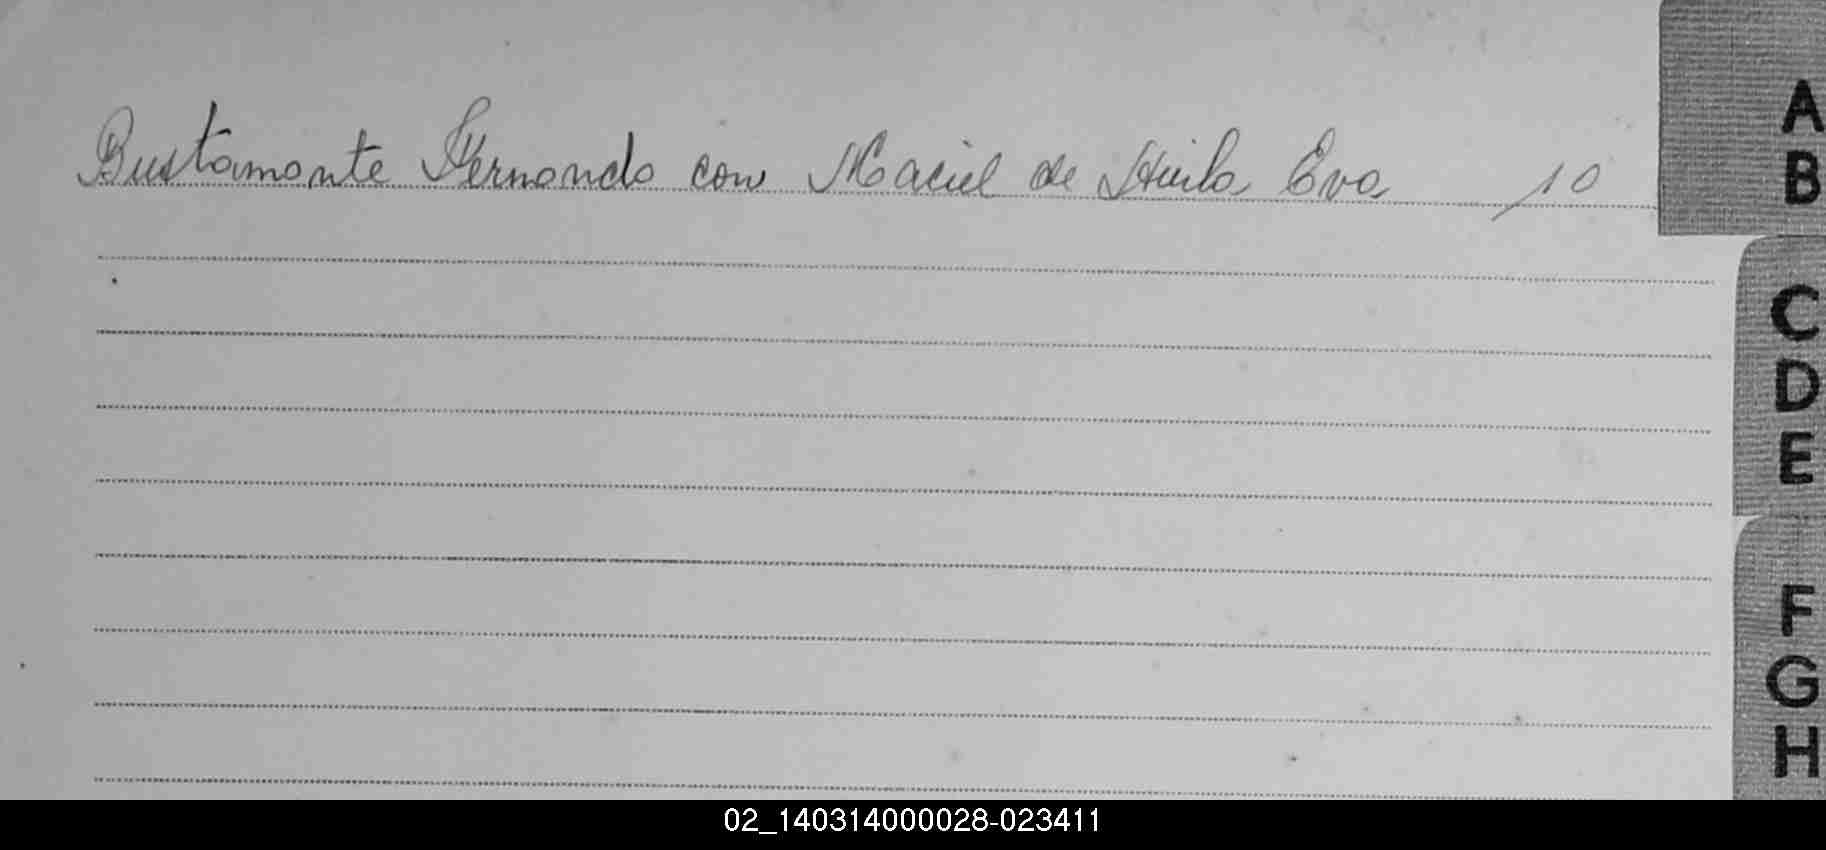 Bustamante Fernando con Maciel de Huila Eva 10
A
B
C
D
E
F
G
H
02_140314000028-023411